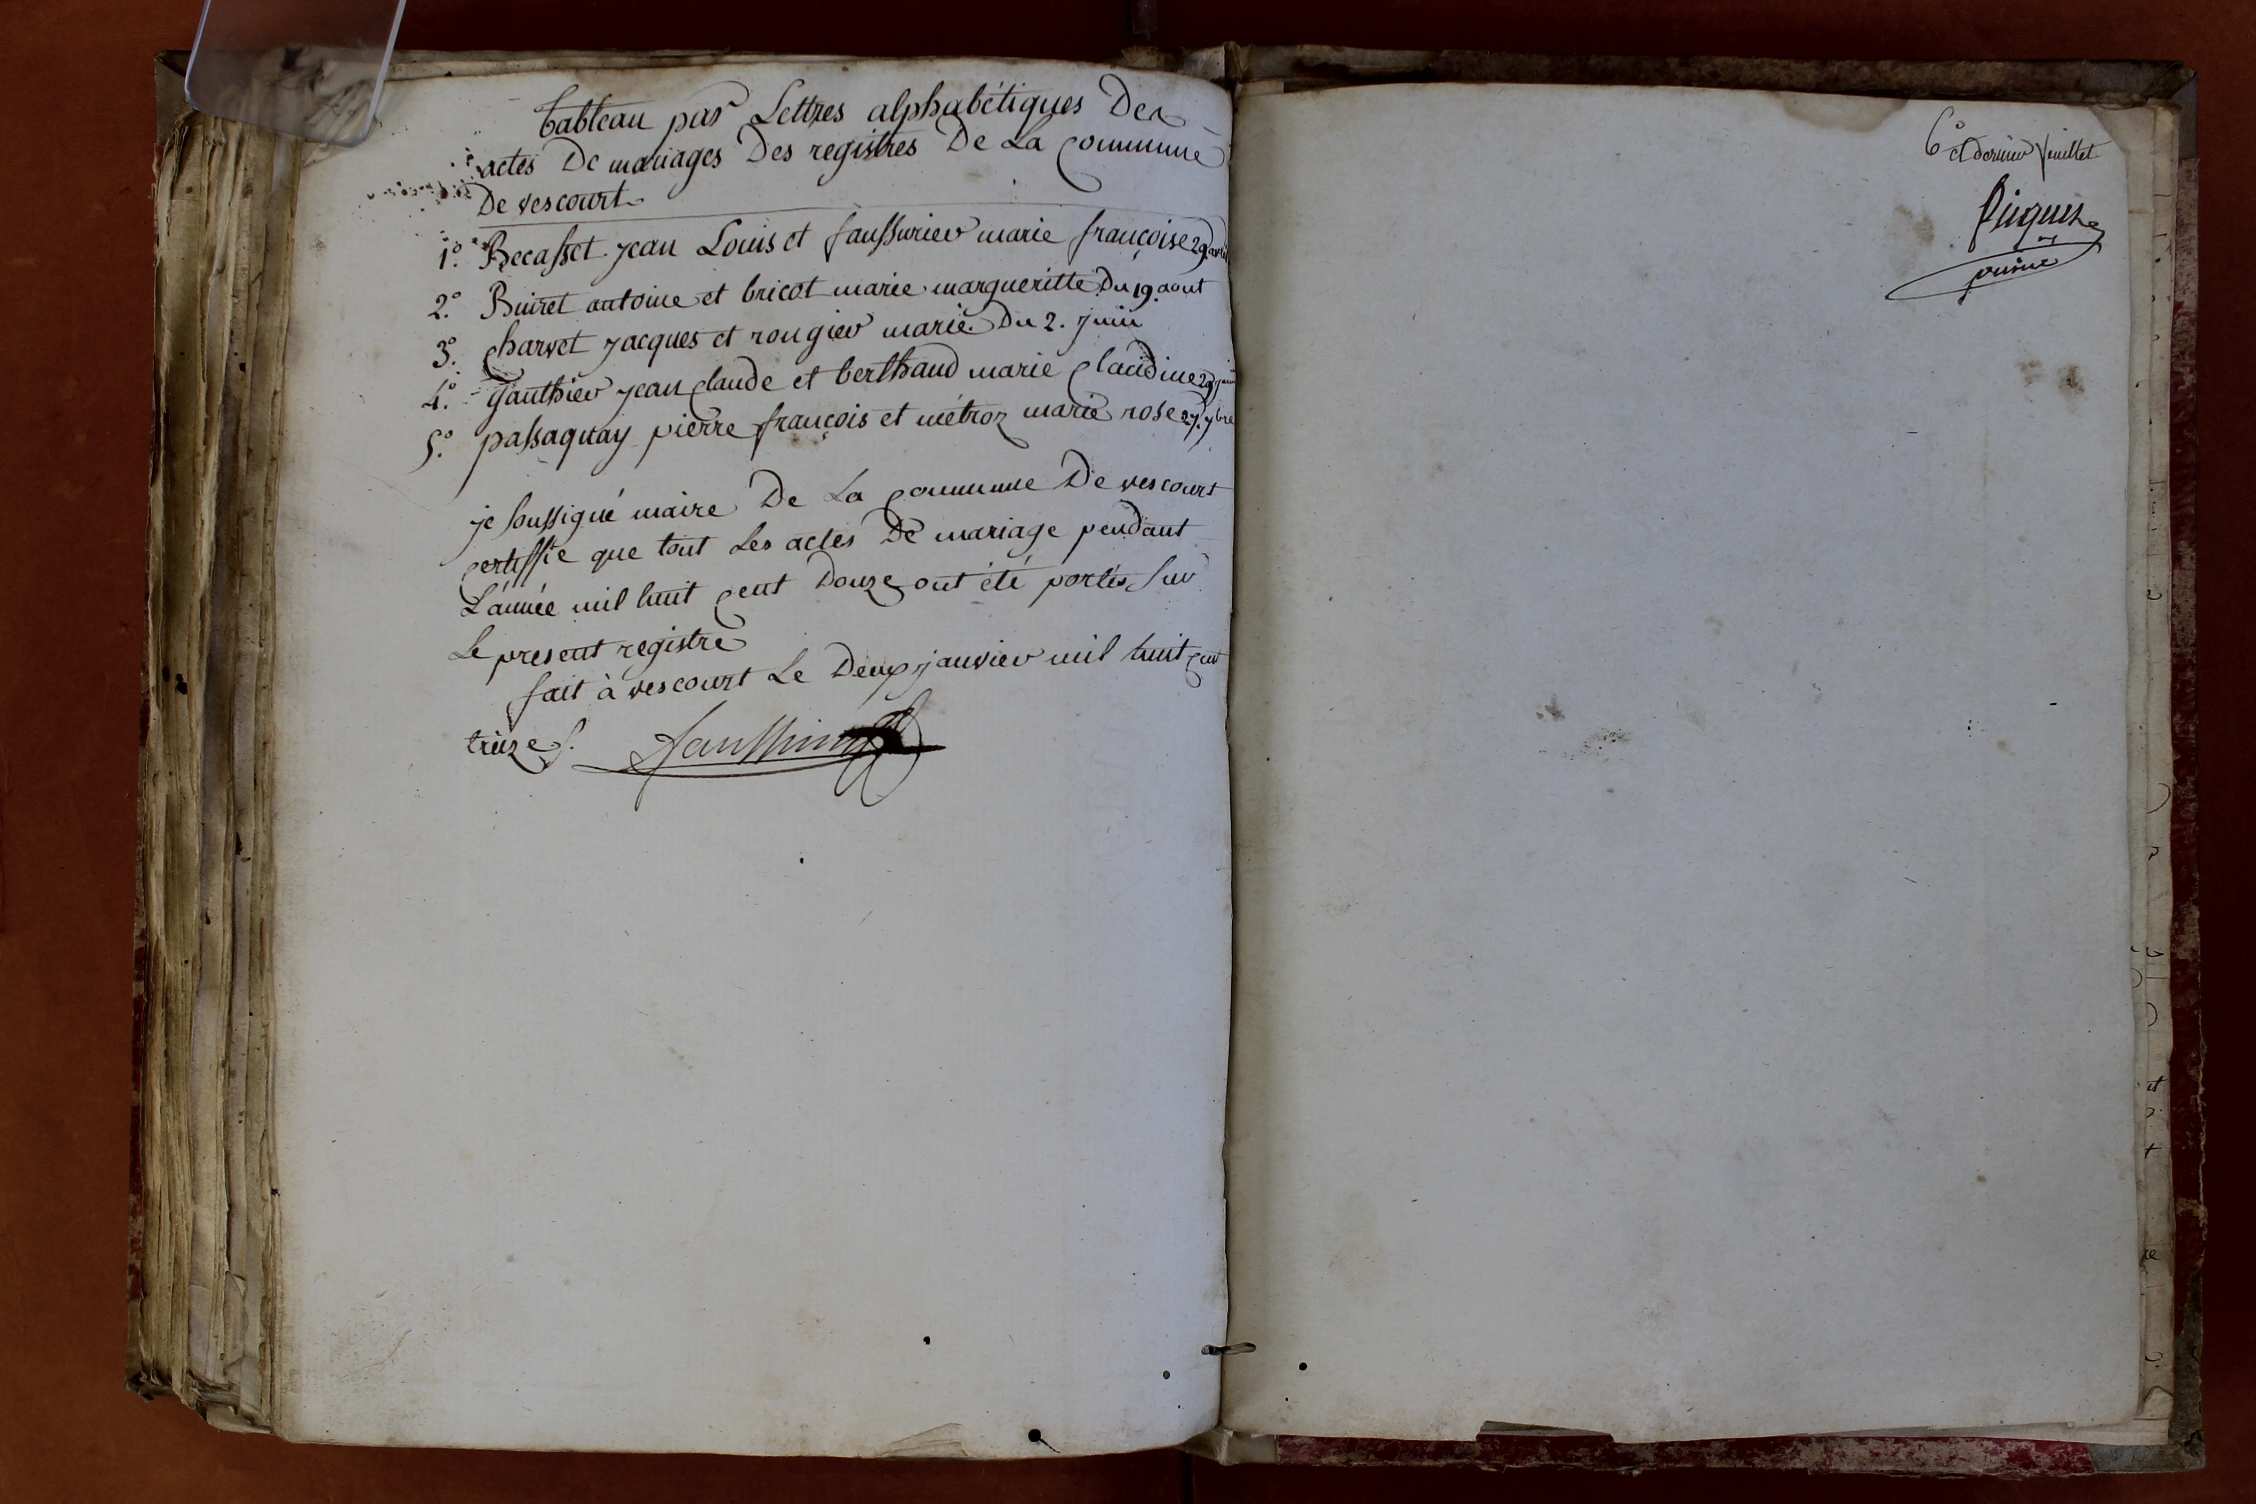 tableau par Lettres alphabétiques Des
actes De mariages Des registres De La Commune
De vescourt
1.° Becasset jean Louis et faussurier marie françoise 29 avril
2.° Buiret antoine et bricot marie margueritte Du 19. aout
3.° Charvet jacques et rougier marie. Du 2. juin
4.° Gauthier jean Claude et berthaud marie Claudine 29 juin
5.° passaquay pierre françois et métroz marie rose 27. 7bre
je soussigné maire De La Commune De vescourt
Certiffie que tout Les actes De mariage pendant
L'année mil huit Cent Douze ont été portés sur
Le present registre
fait à vescourt Le Deux janvier mil huit Cent
treize
6° et dernier feuillet